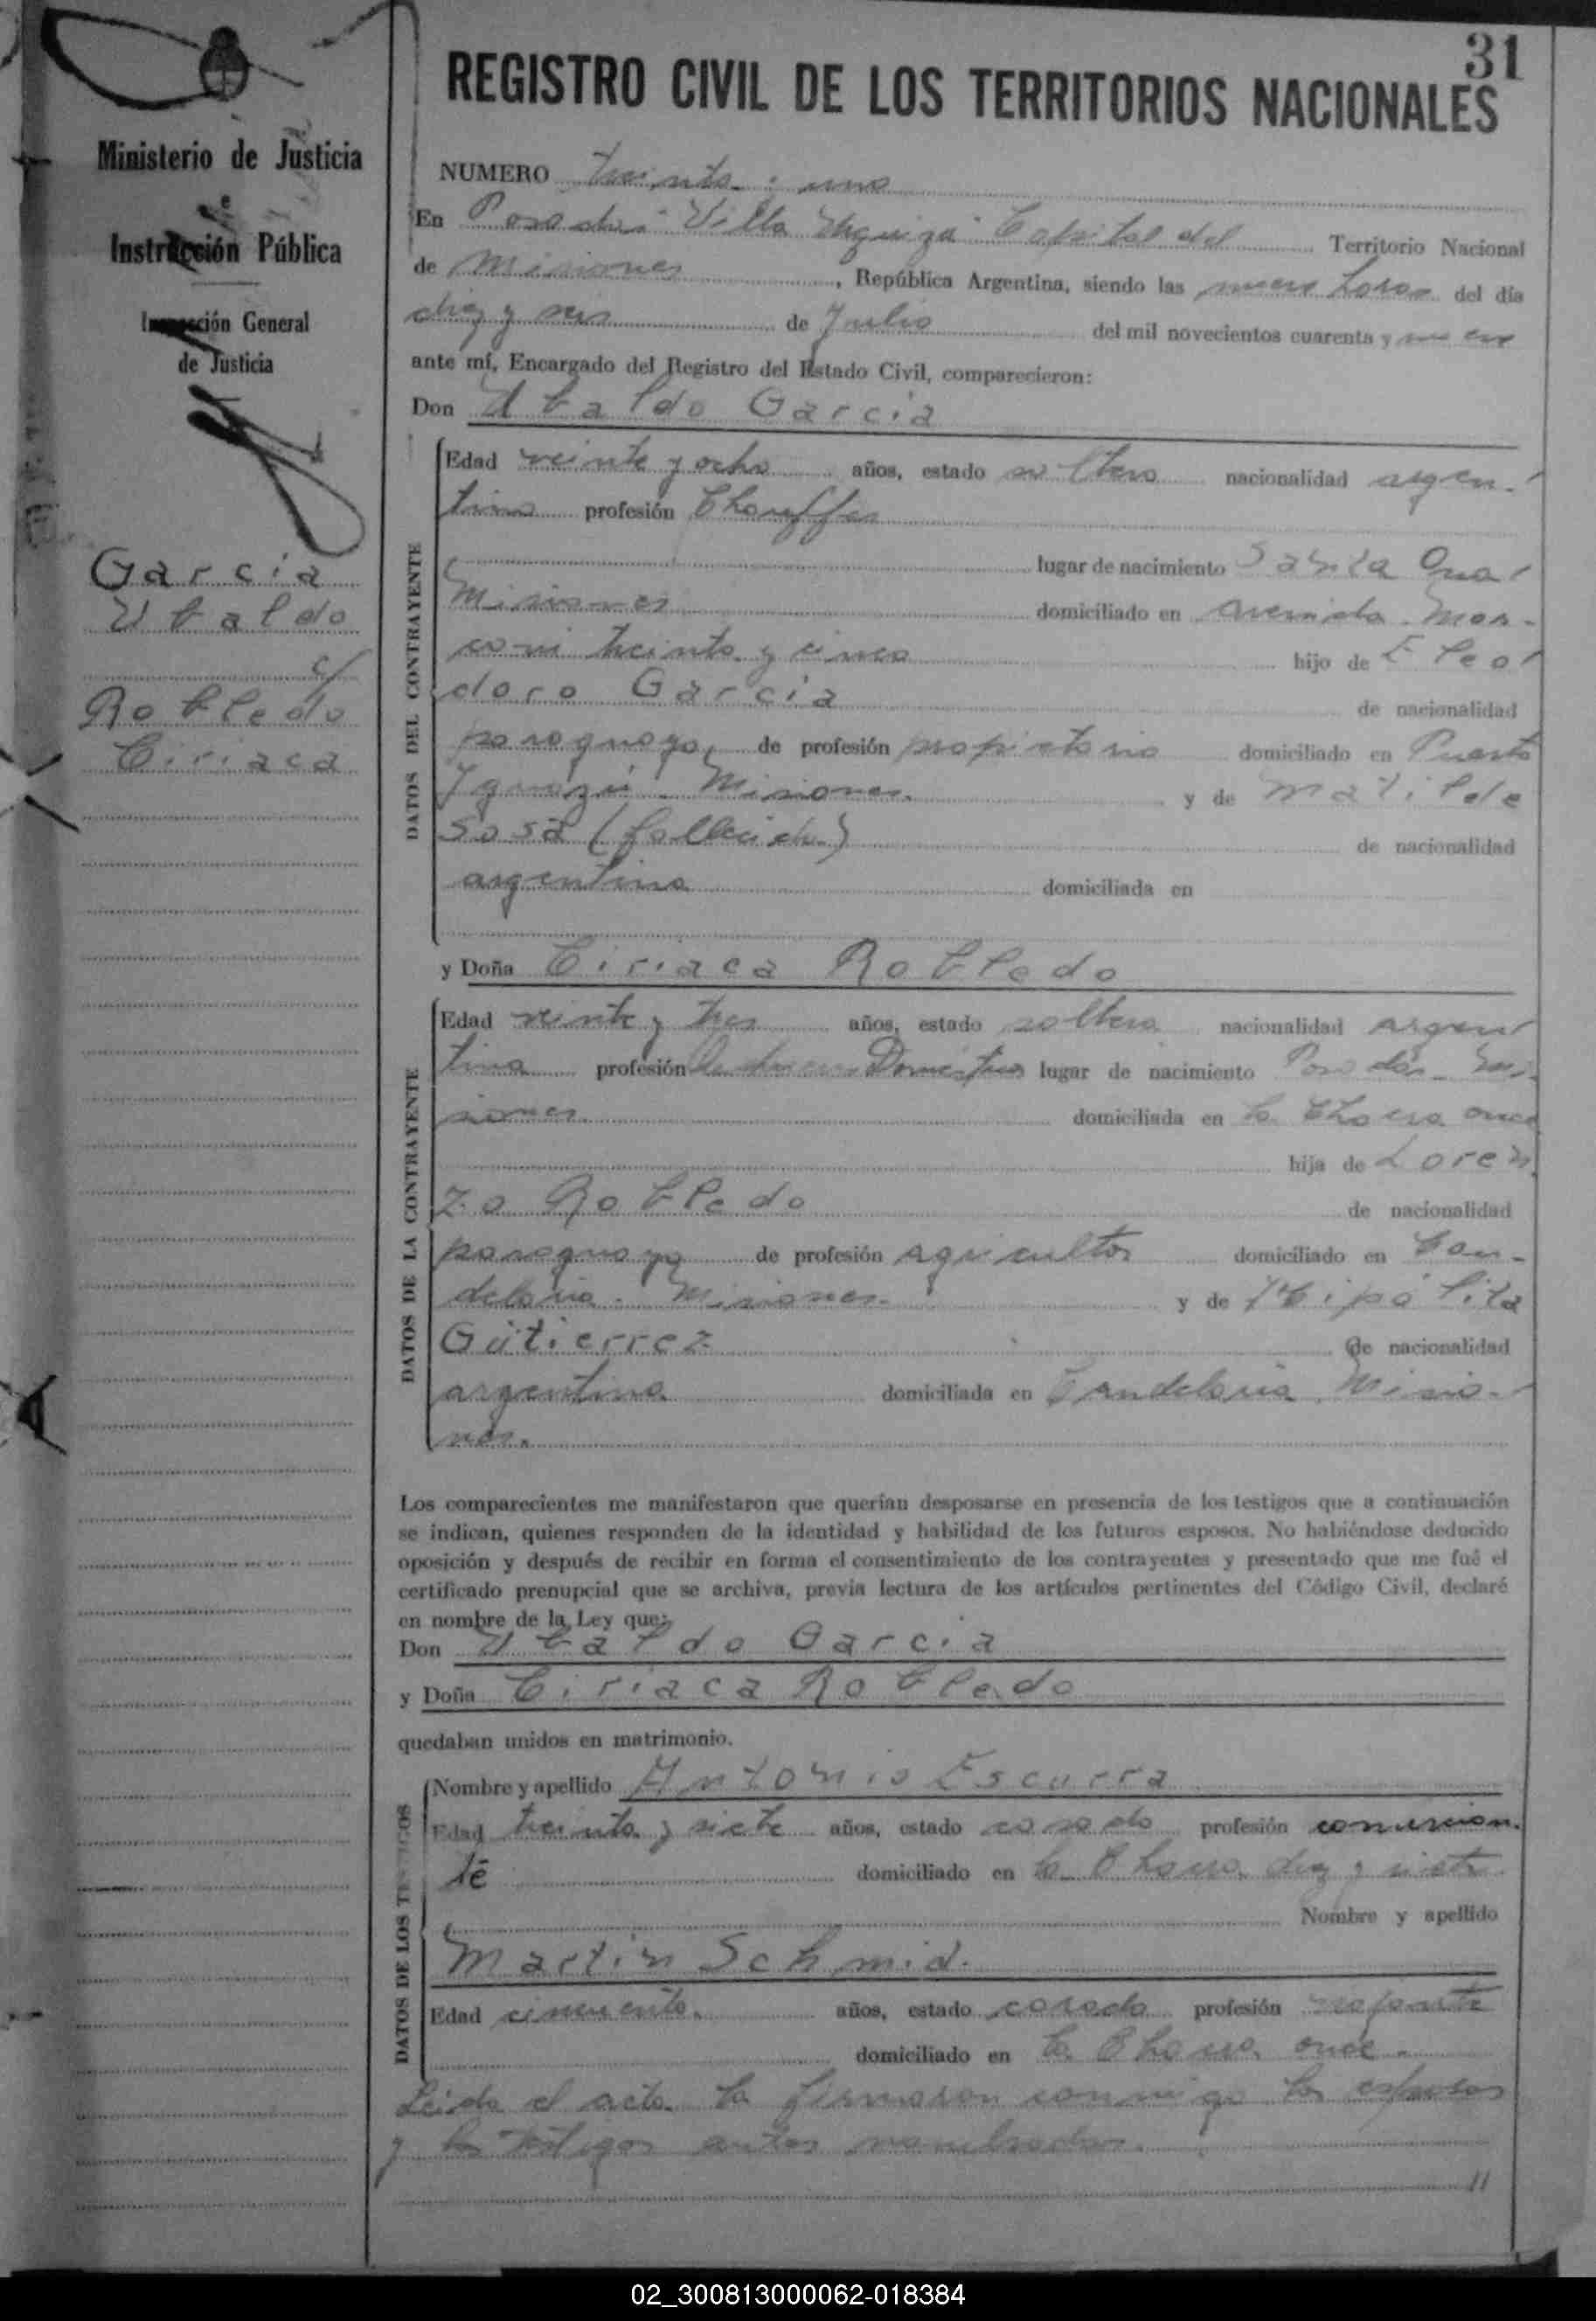 31
REGISTRO CIVIL DE LOS TERRITORIOS NACIONALES
Ministerio de Justicia
e
Instrucción Pública
Inspección General
de Justicia
García
Ubaldo
c/
Robledo
Ciriaca
NUMERO treinta y uno
En Posadas Villa Urquiza Capital del Territorio Nacional
de Misiones, República Argentina, siendo las nueve horas del día
diez y seis de Julio del mil novecientos cuarenta y nueve
ante mí, Encargado del Registro del Estado Civil, comparecieron:
Don Ubaldo García
DATOS DEL CONTRAYENTE
Edad veinte y ocho años, estado soltero nacionalidad argen-
tino profesión Chauffer
lugar de nacimiento Santa Ana
Misiones domiciliado en Avenida Mar-
coni treinta y cinco hijo de Eleo
doro García de nacionalidad
paraguayo, de profesión propietario domiciliado en Puerto
Yguazú. Misiones. y de Matilde
Sosa (fallecida) de nacionalidad
argentina domiciliada en
y Doña Ciriaca Robledo
DATOS DE LA CONTRAYENTE
Edad veinte y tres años, estado soltera nacionalidad argen
tina profesión Domésticos lugar de nacimiento Posadas Mi-
siones domiciliada en la Chacra once
hija de Loren
zo Robledo de nacionalidad
paraguayo de profesión agricultor domiciliado en Can-
delaria. Misiones. y de Hipólita
Gutierrez de nacionalidad
argentina domiciliada en Candelaria Misio-
nes.
Los comparecientes me manifestaron que querían desposarse en presencia de los testigos que a continuación
se indican, quienes responden de la identidad y habilidad de los futuros esposos. No habiéndose deducido
oposición y después de recibir en forma el consentimiento de los contrayentes y presentado que me fué el
certificado prenupcial que se archiva, previa lectura de los artículos pertinentes del Código Civil, declaré
en nombre de la Ley que:
Don Ubaldo García
y Doña Ciriaca Robledo
quedaban unidos en matrimonio.
DATOS DE LOS TESTIGOS
Nombre y apellido Antonio Escurra
Edad treinta y siete años, estado casado profesión comercian-
te domiciliado en la Chacra diez y siete
Nombre y apellido
Martin Schmid.
Edad cincuenta años, estado casado profesión
domiciliado en la Chacra once.
Leída el acta la firmaron conmigo los esposos
y los testigos antes nombrados.
02_300813000062-018384